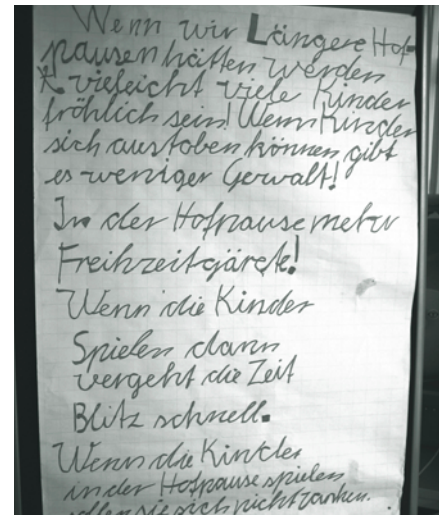 Wenn wir Längere Hof-
pausen hätten werden
vieleicht viele Kinder
fröhlich sein! Wenn Kinder
sich austoben können gibt
es weniger Gewalt!
In der Hofpause mehr
Freihzeitgäräte!
Wenn die Kinder
Spielen dann
vergeht die Zeit
Blitz schnell.
Wenn die Kinder
in der Hofpause spielen
sollen sie sich nicht zanken.